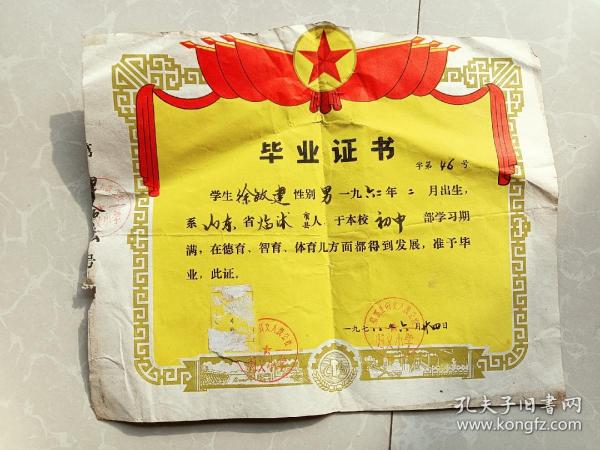 毕业证书
字第 46 号
学生 徐敬建 性别 男 一九六二年 二 月出生，
系 山东 省 临沭 县 人，于本校 初中 部学习期
满，在德育、智育、体育几方面都得到发展，准予毕
业，此证。
一九七 年 六 月 廿四日
孔夫子旧书网
www.kongfz.com